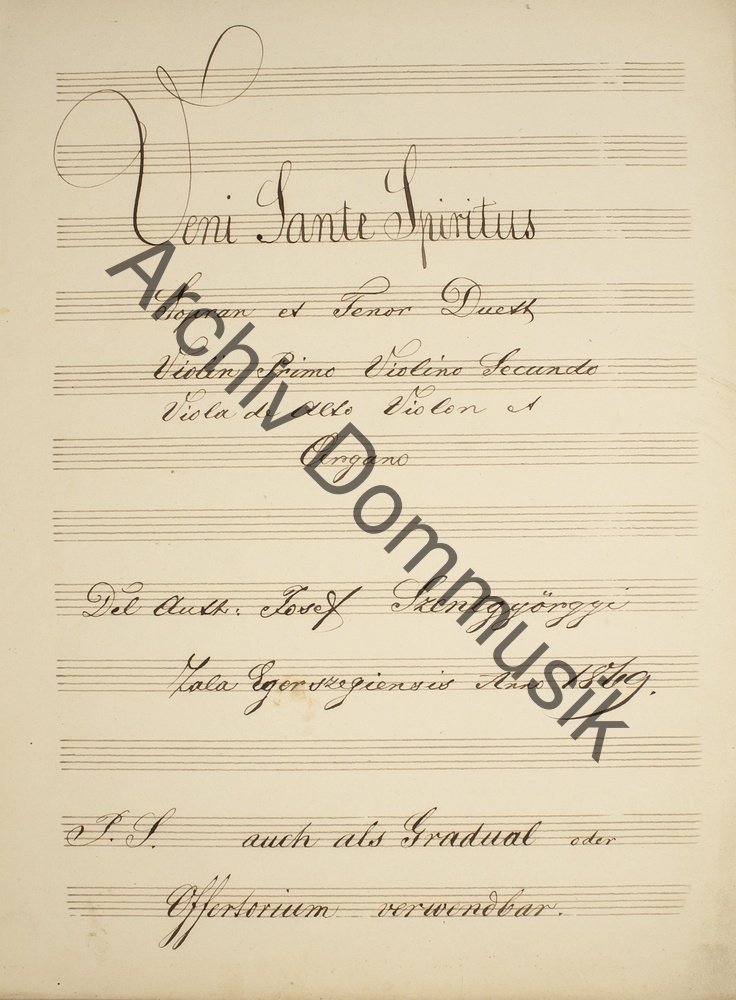 Veni Sante Spiritus
Sopran et Tenor Duett
Violin Primo Violino Secundo
Viola di Alto Violon et
Organo
Del Auth: Josef Szentgyörgyi
Zala Egerszegiensis Anno
P. S. auch als Gradual oder
Offertorium verwendbar.
Archiv Dommusik